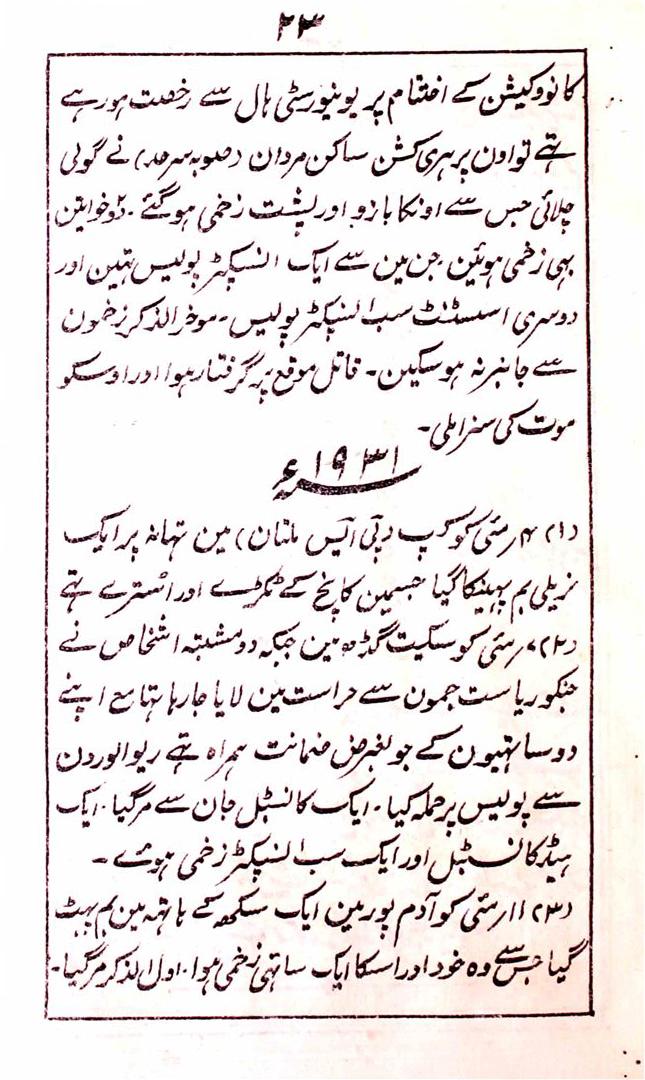 ۲۳
کانووکیشن کے اختتام پر یونیورسٹی ہال سے رخصت ہورہے
تہے تو اون پر ہری کشن ساکن مردان (صوبہ سرحد) نے گولی
چلائی جس سے اونکا بازو اور پشت زخمی ہوگئے۔ دو خواتین
بہی زخمی ہوئین جن مین سے ایک انسپکٹر پولیس تہین اور
دوسری اسسٹنٹ سب انسپکٹر پولیس۔ موخر الذکر زخمون
سے جانبر نہ ہوسکین۔ قاتل موقع پر گرفتار ہوا اور اوسکو
موت کی سزا ملی۔
۱۹۳۱ء
(۱) ۴ رمئی کو کرپ (پی ایس ملتان) مین تہانہ پر ایک
نزیلی بم پہینکا گیا جسمین کانچ کے ٹکڑے اور اُسترے تہے
(۲) ۷ رمئی کو سکیت گڈہ مین جبکہ دو مشتبہ اشخاص نے
جنکو ریاست جمون سے حراست مین لایا جارہا تہا مع اپنے
دو ساتہیون کے جو بغرض ضمانت ہمراہ تہے ریوالورون
سے پولیس پر حملہ کیا۔ ایک کانسٹبل جان سے مرگیا۔ ایک
ہیڈ کانسٹبل اور ایک سب انسپکٹر زخمی ہوئے۔
(۳) ۱۱ رمئی کو آدم پور مین ایک سکھ کے ہاتہ مین بم پہٹ
گیا جس سے وہ خود اور اسکا ایک ساتہی زخمی ہوا۔ اول الذکر مرگیا۔